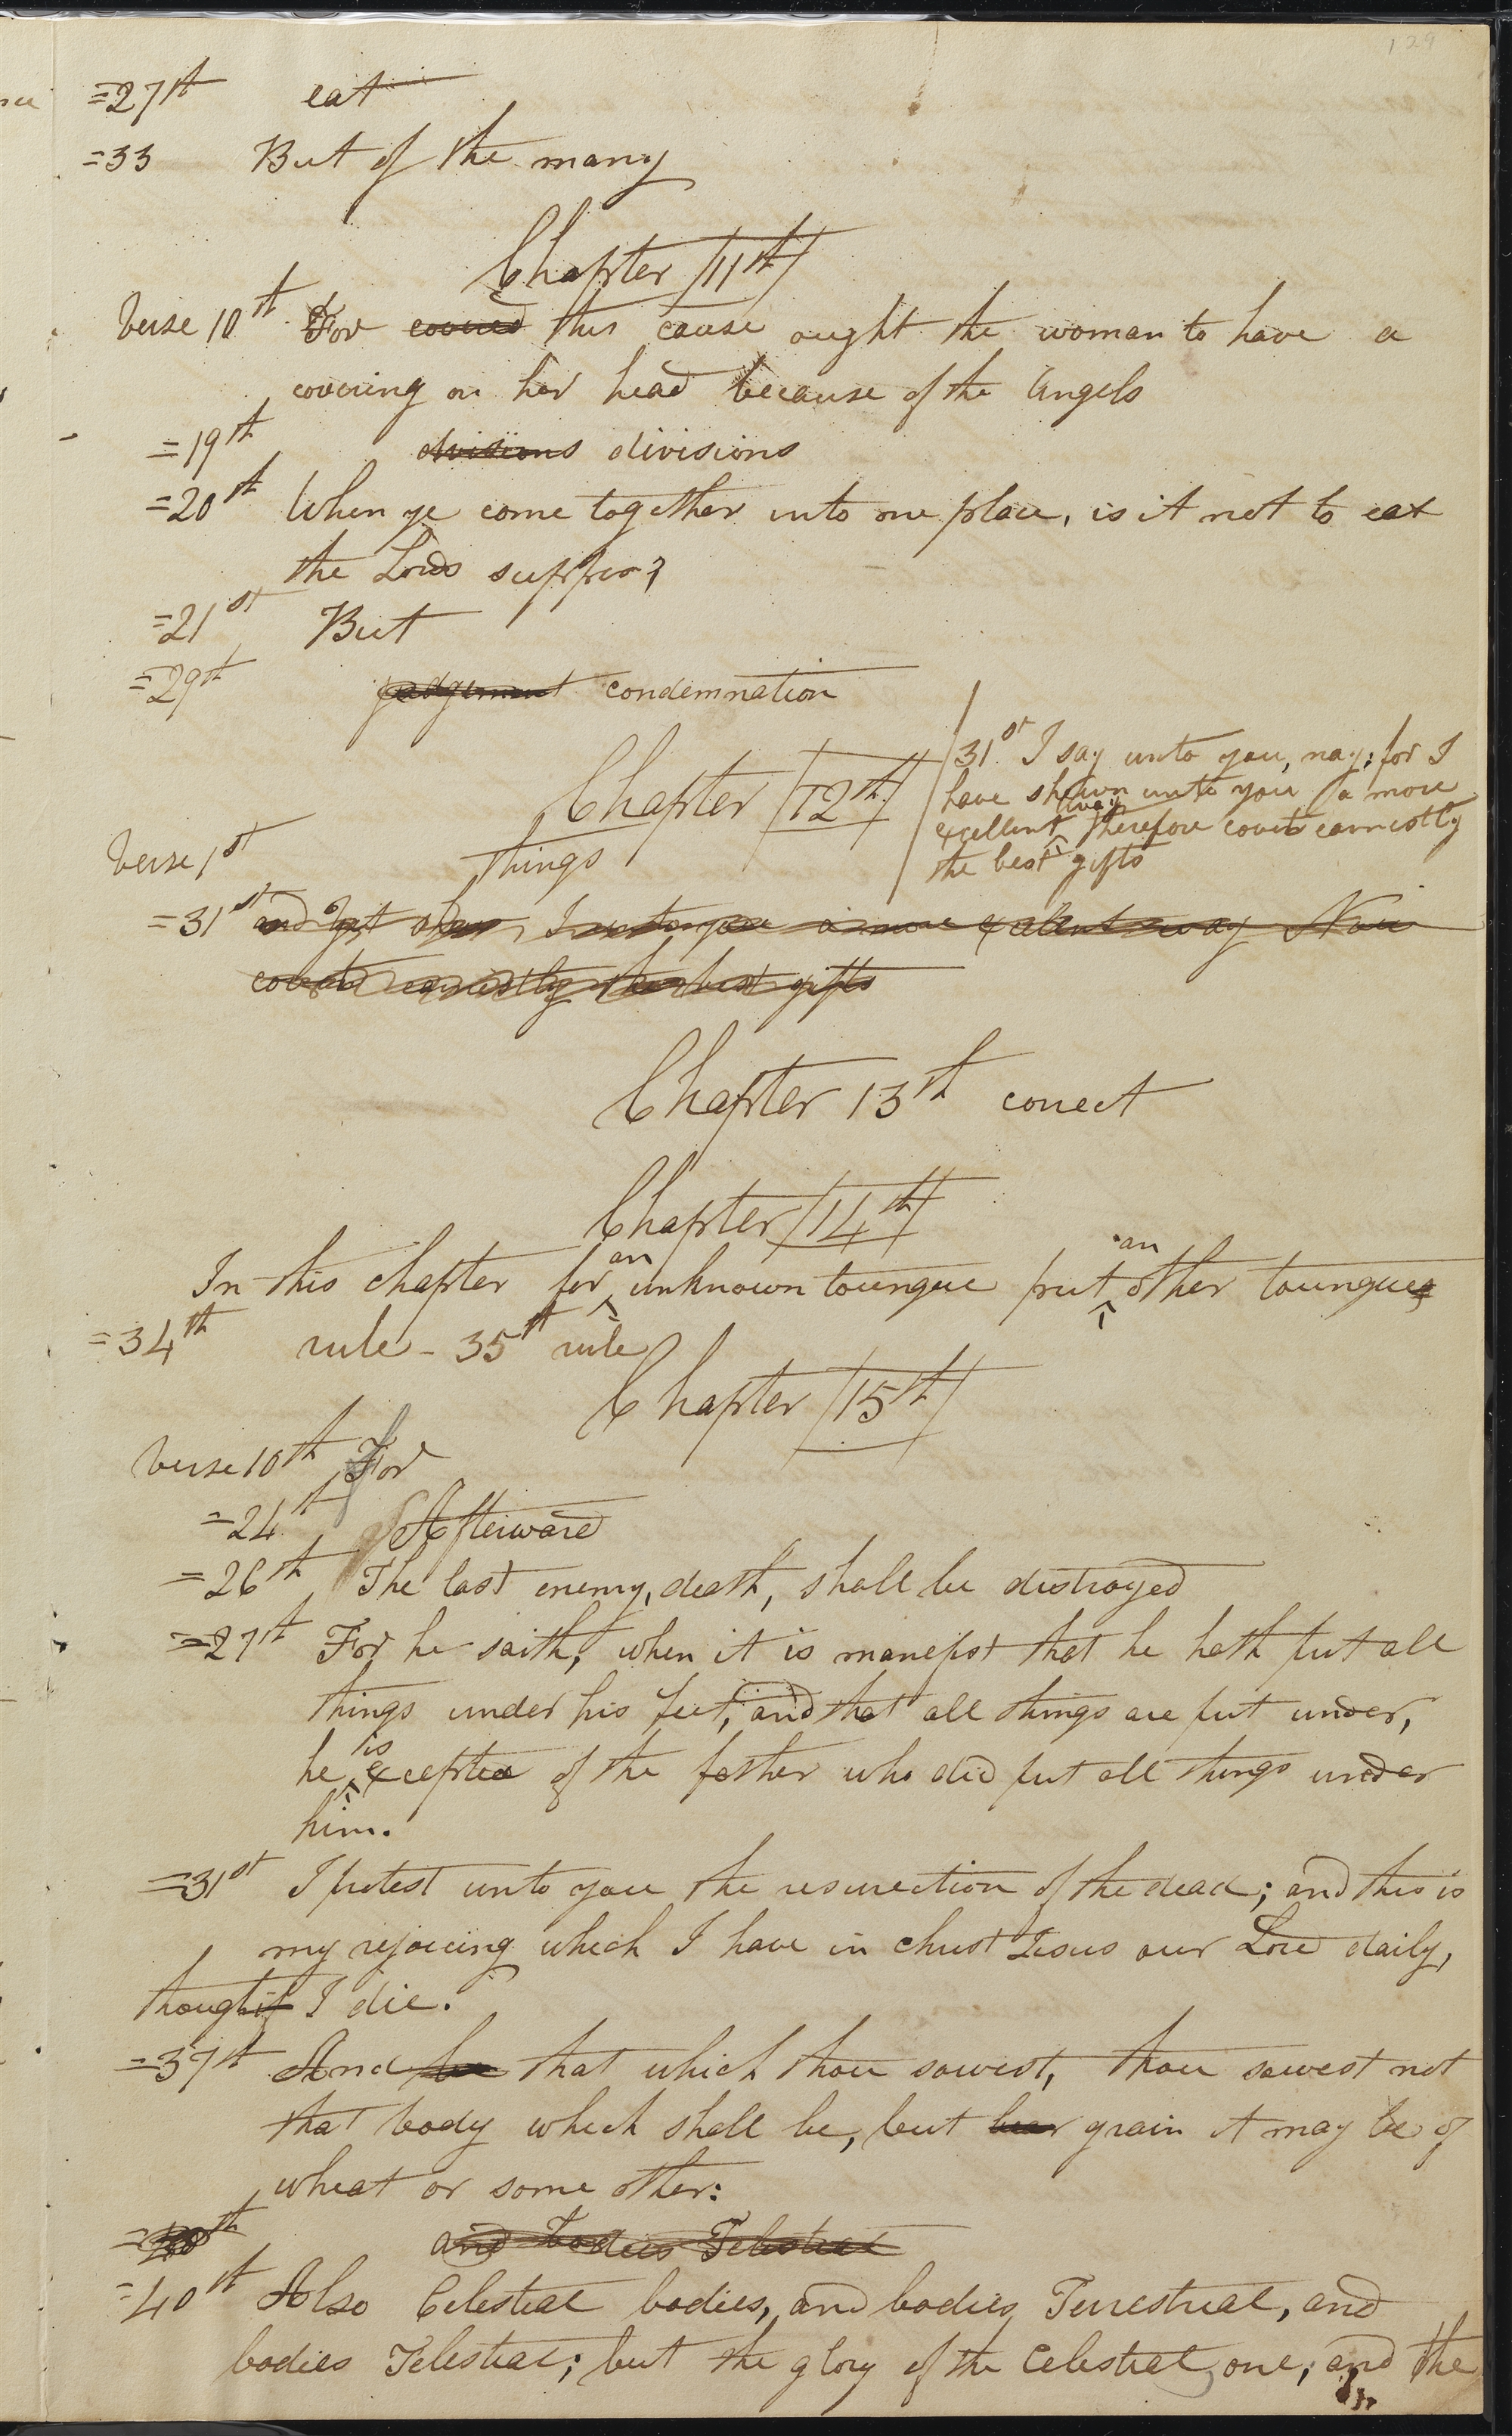 129
=27th eat
=33 But of the many
Chapter 11th
Verse 10th For covered this cause ought the woman to have a
covering on her head because of the Angels
=19th divisions divisions
=20th When ye come together into one place, is it not to eat
the Lords supper?
=21st But
=29th judgement condemnation
Chapter 12th
31st I say unto you, nay; for I
have shewn unto you a more
excellent way therefore covet earnestly
the best gifts
Verse 1st things
=31st and yet shew I unto you a more excellent way Now
covet earnestly the best gifts
Chapter 13th correct
Chapter 14th
In this chapter for an unknown toungue put an other toungues
=34th rule - 35th rule
Chapter 15th
Verse 10th For
=24th Afterward
=26th The last enemy, death, shall be distroyed
=27th For he saith, when it is manefist that he hath put all
things under his feet, and that all things are put under,
he is excepted of the father who did put all things under
him.
=31st I protest unto you the resurrection of the dead; and this is
my rejoicing which I have in christ Jesus our Lord daily,
though if I die.
=37th And that which thou sowest, thou sowest not
that body which shall be, but bear grain it may be of
wheat or some other:
and bodies Telestial
=40th Also Celestial bodies, and bodies Terrestrial, and
bodies Telestial; but the glory of the Celestial one; and the